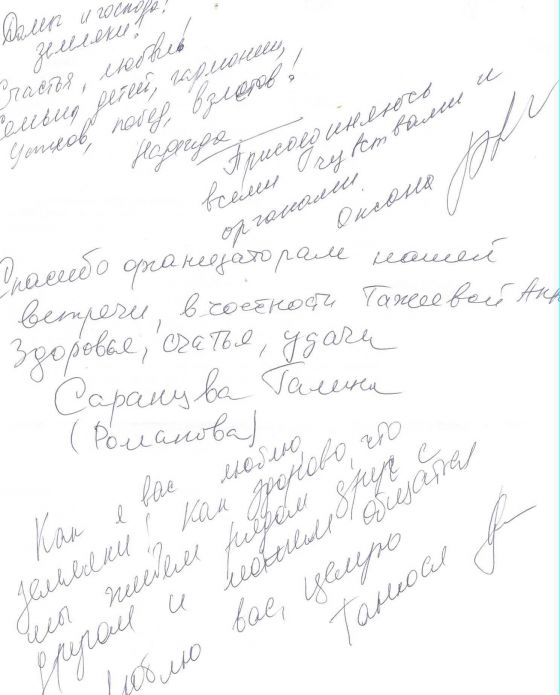 Дамы и господа!
земляки!
Счастья, любви!
больше детей, гармонии,
успехов, побед, взлетов!
Надежда
Присоединяюсь
всеми чувствами и
органами.
Оксана
Спасибо организаторам нашей
встречи, в частности Тажеевой Анн
Здоровье, счастья, удачи
Саранцева Галина
(Романова)
Как я вас люблю,
земляки! Как здорово, что
мы живем рядом друг с
другом и можем общаться
Люблю вас, целую
Танюся